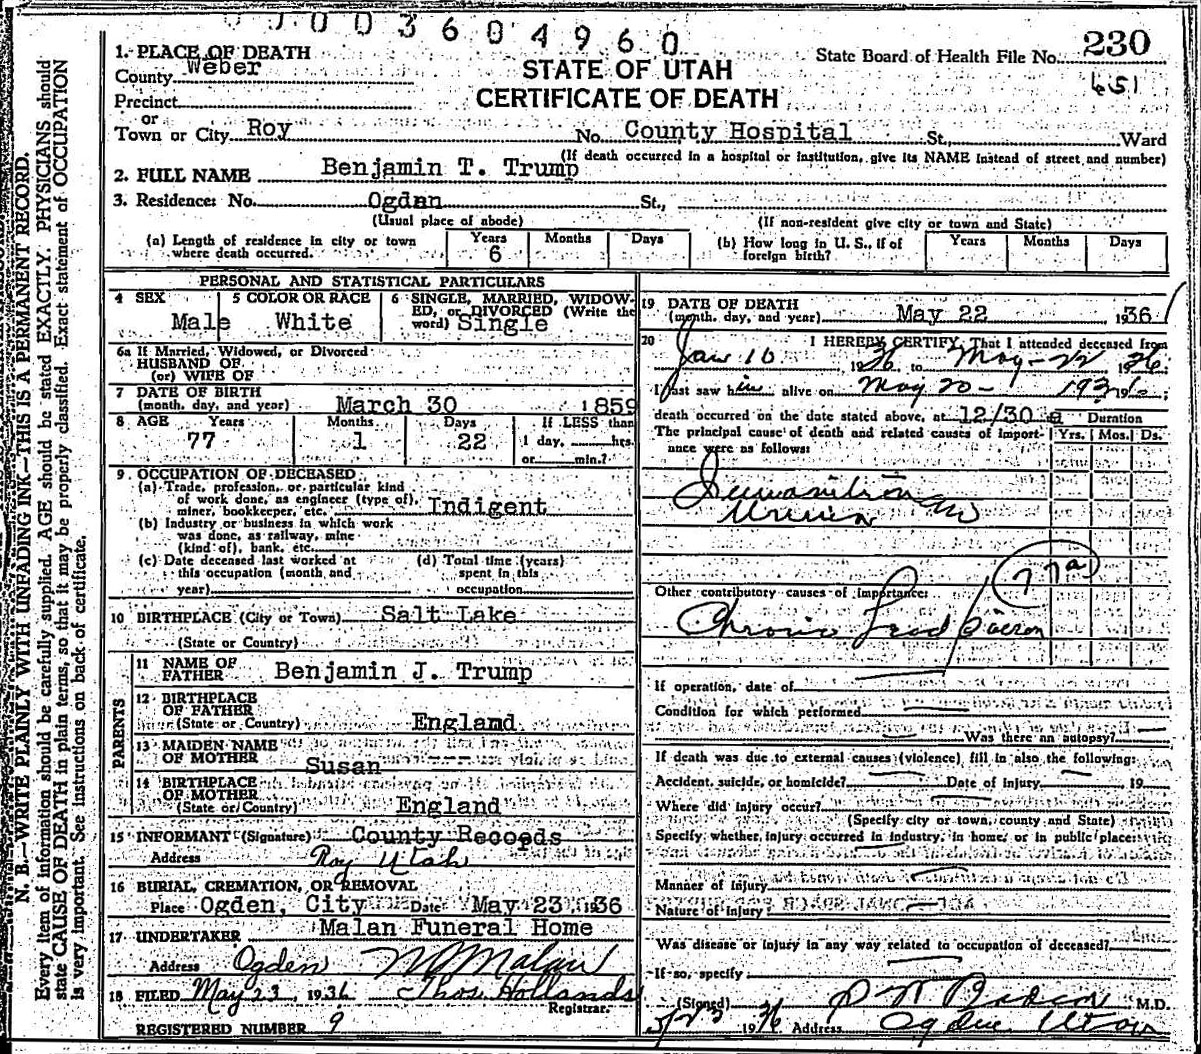 0003604960
1. PLACE OF DEATH
County Weber
STATE OF UTAH
CERTIFICATE OF DEATH
State Board of Health File No. 230
651
Precinct
or
Town or City Roy No. County Hospital St., Ward
(If death occurred in a hospital or institution, give its NAME instead of street and number)
2. FULL NAME Benjamin T. Trump
3. Residence: No. Ogden St.,
(Usual place of abode) (If non-resident give city or town and State)
(a) Length of residence in city or town where death occurred. Years 6 Months Days
(b) How long in U. S., if of foreign birth? Years Months Days
PERSONAL AND STATISTICAL PARTICULARS
4 SEX Male
5 COLOR OR RACE White
6 SINGLE, MARRIED, WIDOWED, or DIVORCED (Write the word) Single
6a If Married, Widowed, or Divorced
HUSBAND OF
(or) WIFE OF
7 DATE OF BIRTH
(month, day, and year) March 30 1859
8 AGE Years 77 Months 1 Days 22 If LESS than
1 day, hrs.
or min.?
9 OCCUPATION OF DECEASED
(a) Trade, profession, or particular kind
of work done, as engineer (type of),
miner, bookkeeper, etc. Indigent
(b) Industry or business in which work
was done, as railway, mine
(kind of), bank, etc.
(c) Date deceased last worked at
this occupation (month and
year)
(d) Total time (years)
spent in this
occupation
10 BIRTHPLACE (City or Town) Salt Lake
(State or Country)
PARENTS
11 NAME OF
FATHER Benjamin J. Trump
12 BIRTHPLACE
OF FATHER
(State or Country) England
13 MAIDEN NAME
OF MOTHER Susan
14 BIRTHPLACE
OF MOTHER
(State or Country) England
15 INFORMANT (Signature) County Recoeds
Address Roy Utah
16 BURIAL, CREMATION, OR REMOVAL
Place Ogden, City Date May 23 1936
17 UNDERTAKER Malan Funeral Home
Address Ogden Malan
18 FILED May 23, 1936 Thos. Hollands
Registrar.
REGISTERED NUMBER 9
19 DATE OF DEATH
(month, day, and year) May 22 1936
20 I HEREBY CERTIFY, That I attended deceased from
Jan 10, 1936, to May 22 1936;
I last saw him alive on May 20 - 1936;
death occurred on the date stated above, at 12/30 a
Duration
The principal cause of death and related causes of importance were as follows: Yrs. Mos. Ds.
Other contributory causes of importance:
Chronic
If operation, date of
Condition for which performed
Was there an autopsy?
If death was due to external causes (violence) fill in also the following:
Accident, suicide, or homicide? Date of injury 19
Where did injury occur?
(Specify city or town, county and State)
Specify whether injury occurred in industry, in home, or in public place:
Manner of injury
Nature of injury
Was disease or injury in any way related to occupation of deceased?
If so, specify
(Signed) M.D.
5/23 1936 Address Ogden Utah
N. B.—WRITE PLAINLY WITH UNFADING INK—THIS IS A PERMANENT RECORD.
Every item of information should be carefully supplied. AGE should be stated EXACTLY. PHYSICIANS should
state CAUSE OF DEATH in plain terms, so that it may be properly classified. Exact statement of OCCUPATION
is very important. See instructions on back of certificate.